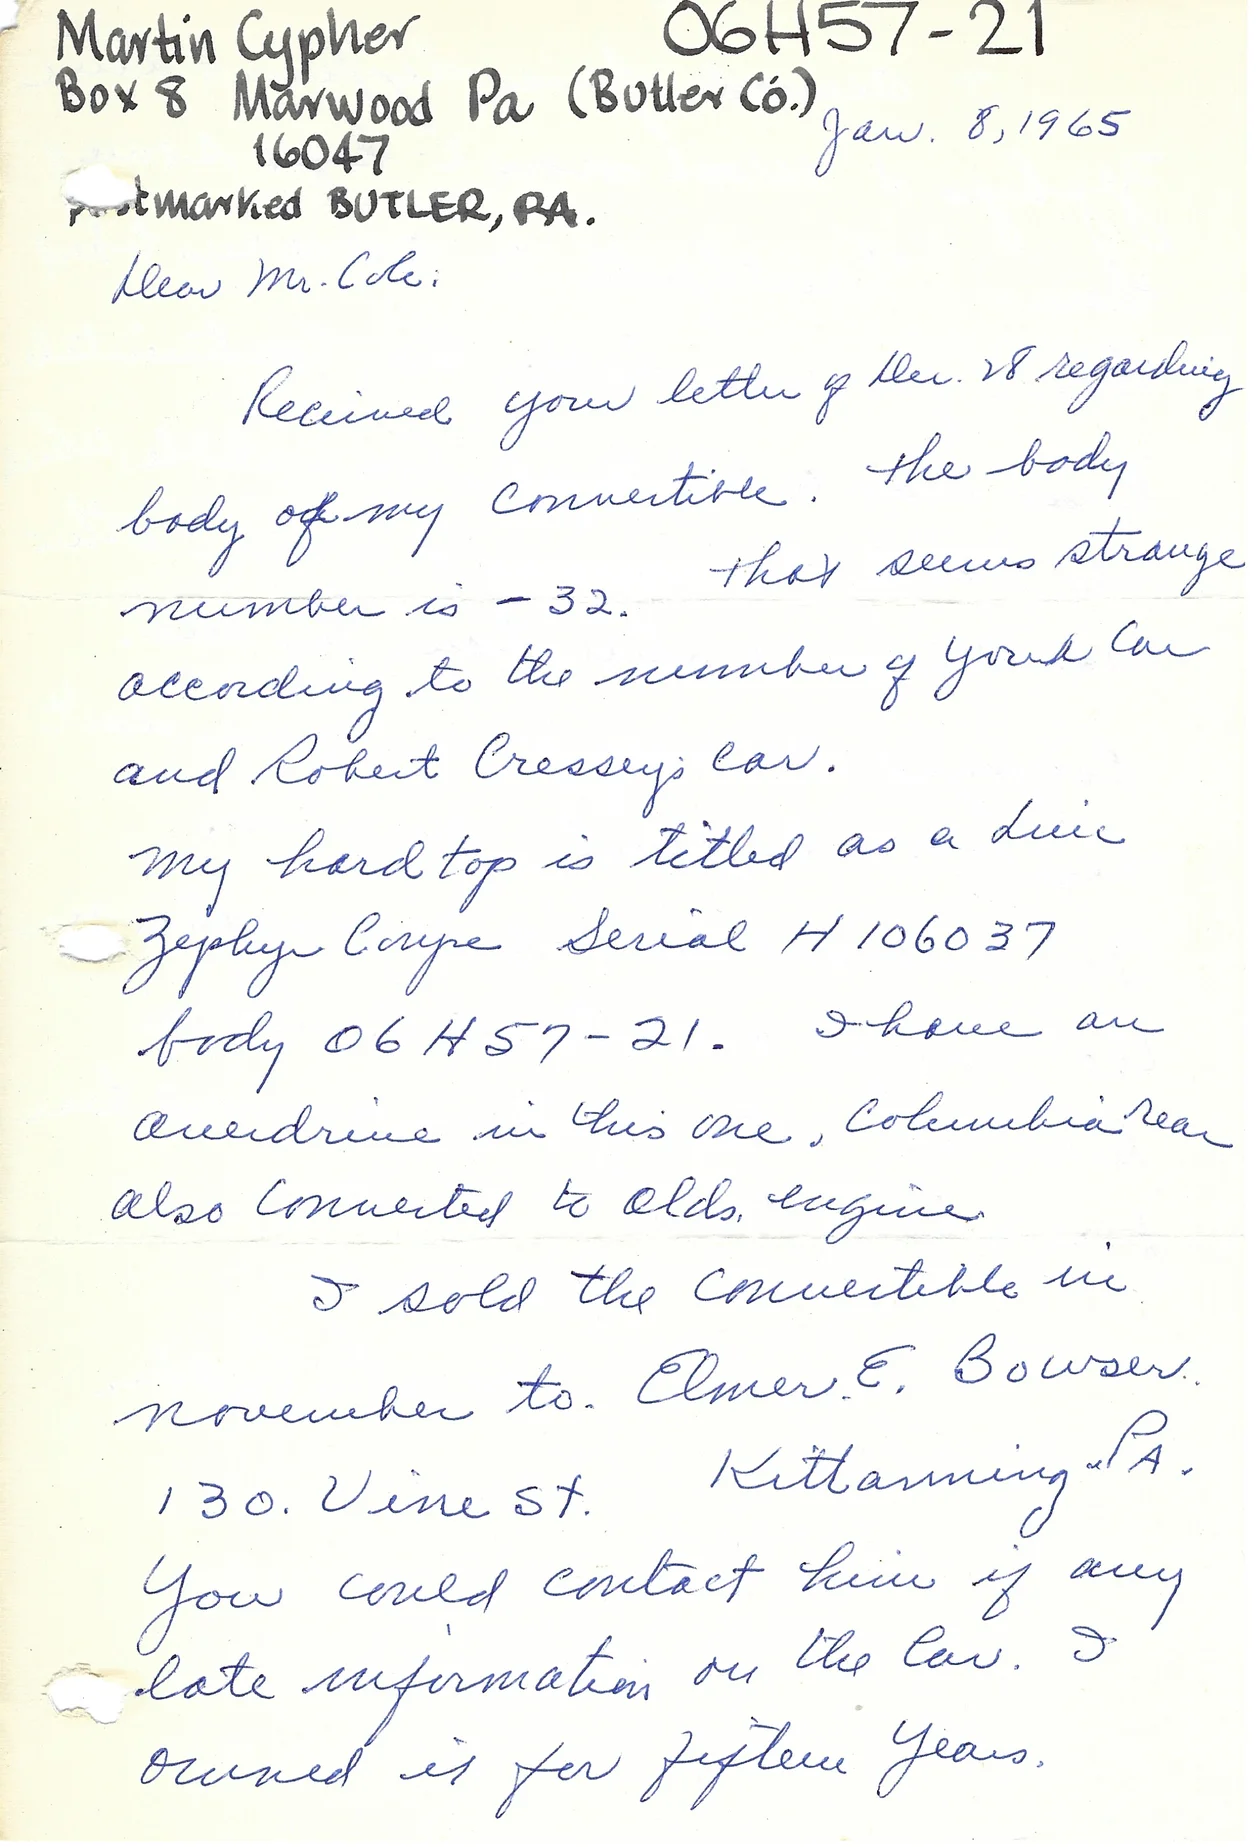 Martin Cypher 06H57-21
Box 8 Marwood Pa (Butler Co.)
Jan. 8, 1965
16047
stmarked BUTLER, PA.
Dear Mr. Cole:
Received your letter of Dec. 28 regarding
body of my convertible. The body
number is - 32. That seems strange
according to the number of your car
and Robert Cressey's car.
My hard top is titled as a
Zephyr Coupe Serial H106037
body 06H57-21. I have an
overdrive in this one, Columbia rear
also converted to Olds. engine
I sold the convertible in
november to. Elmer E. Bowser.
130. Vine St. Kittanning PA.
You could contact him if any
late information on the car. I
owned it for fifteen years.